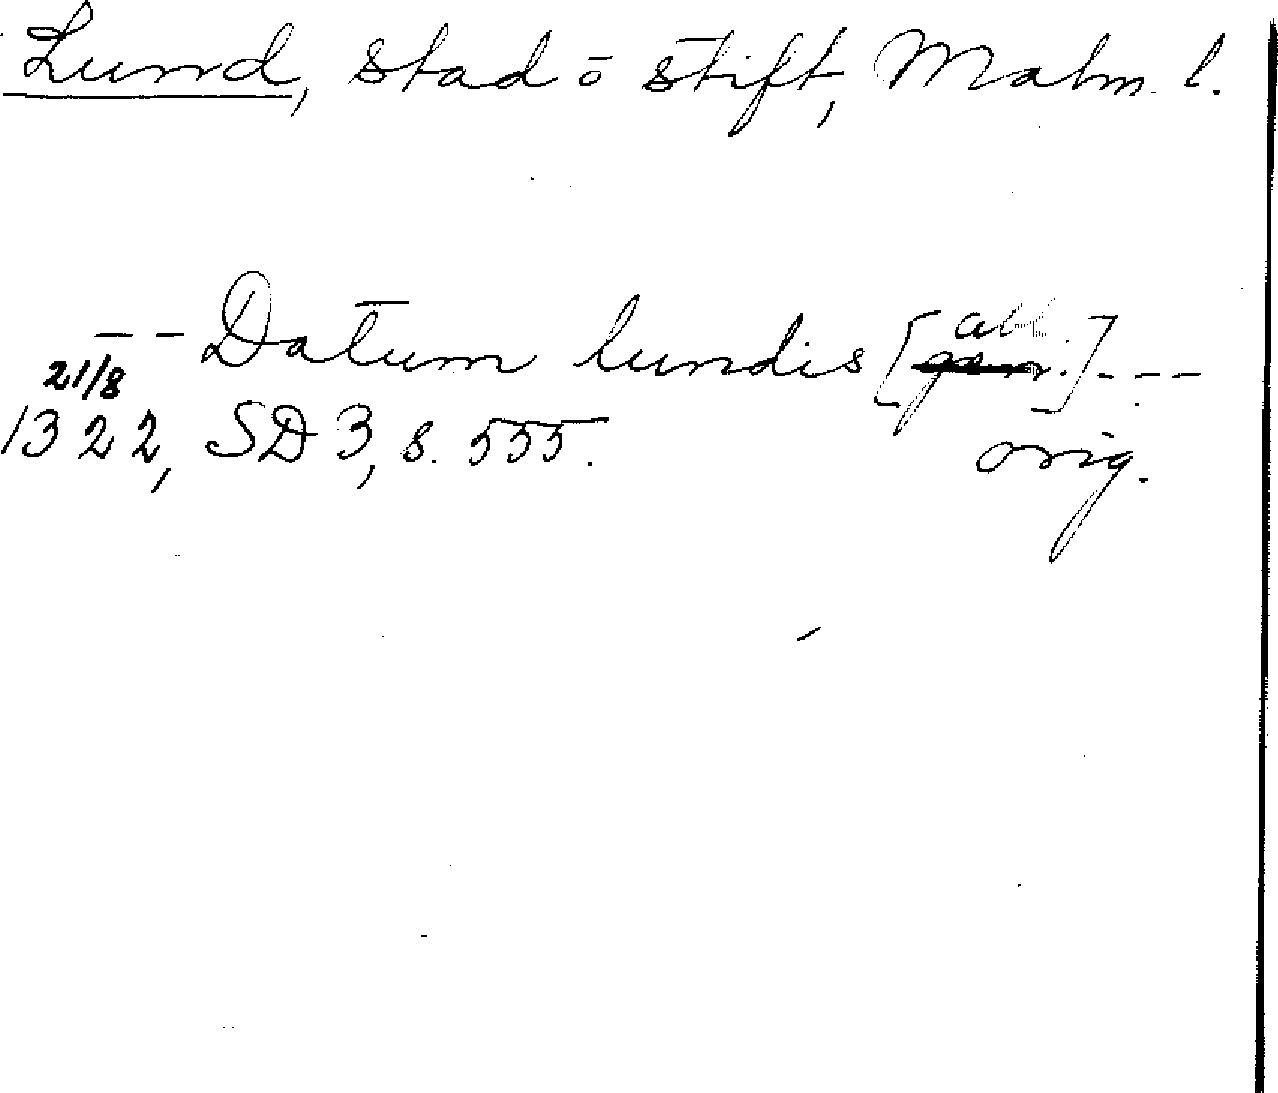 Lund, stad o stift, Malm. l.
-- Datum lundis [abl.]---
21/8
1322, SD 3, s. 555.
orig.